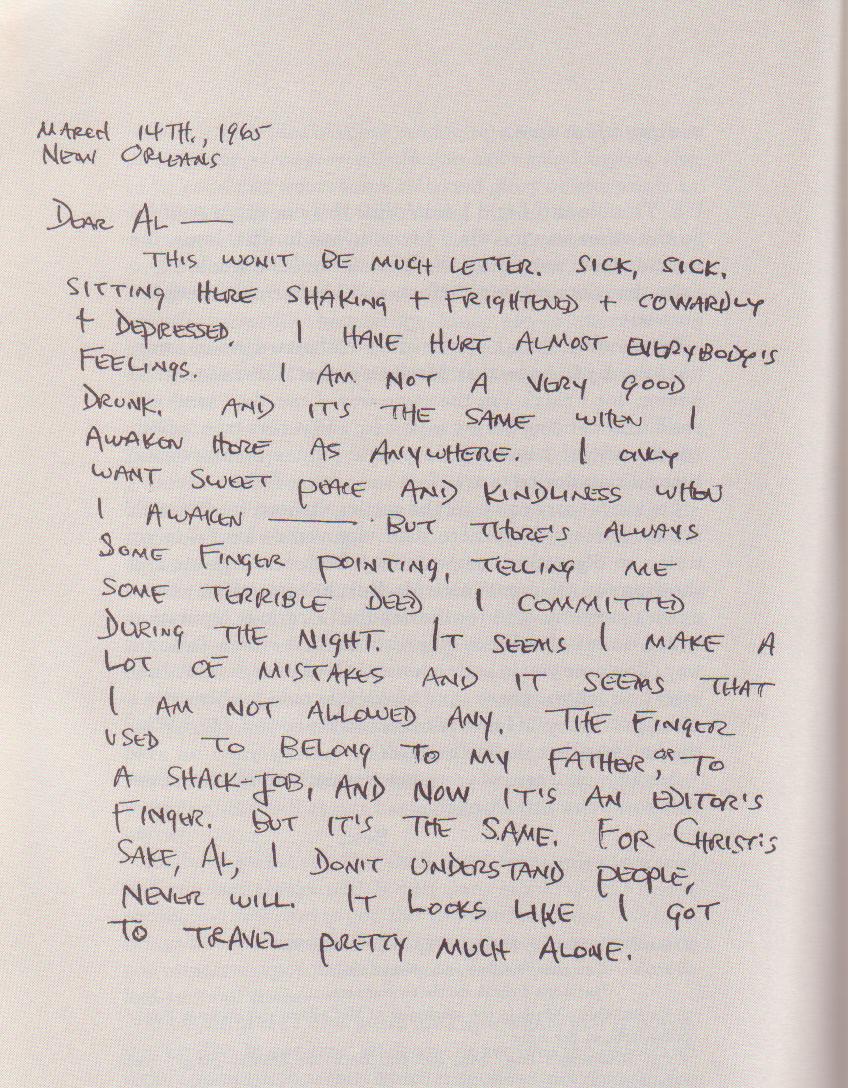 MARCH 14TH., 1965
NEW ORLEANS
DEAR AL ——
THIS WON'T BE MUCH LETTER. SICK, SICK.
SITTING HERE SHAKING + FRIGHTENED + COWARDLY
+ DEPRESSED. I HAVE HURT ALMOST EVERYBODY'S
FEELINGS. I AM NOT A VERY GOOD
DRUNK. AND IT'S THE SAME WHEN I
AWAKEN HERE AS ANYWHERE. I ONLY
WANT SWEET PEACE AND KINDLINESS WHEN
I AWAKEN ——— BUT THERE'S ALWAYS
SOME FINGER POINTING, TELLING ME
SOME TERRIBLE DEED I COMMITTED
DURING THE NIGHT. IT SEEMS I MAKE A
LOT OF MISTAKES AND IT SEEMS THAT
I AM NOT ALLOWED ANY. THE FINGER
USED TO BELONG TO MY FATHER, OR TO
A SHACK-JOB, AND NOW IT'S AN EDITOR'S
FINGER. BUT IT'S THE SAME. FOR CHRIST'S
SAKE, AL, I DON'T UNDERSTAND PEOPLE,
NEVER WILL. IT LOOKS LIKE I GOT
TO TRAVEL PRETTY MUCH ALONE.